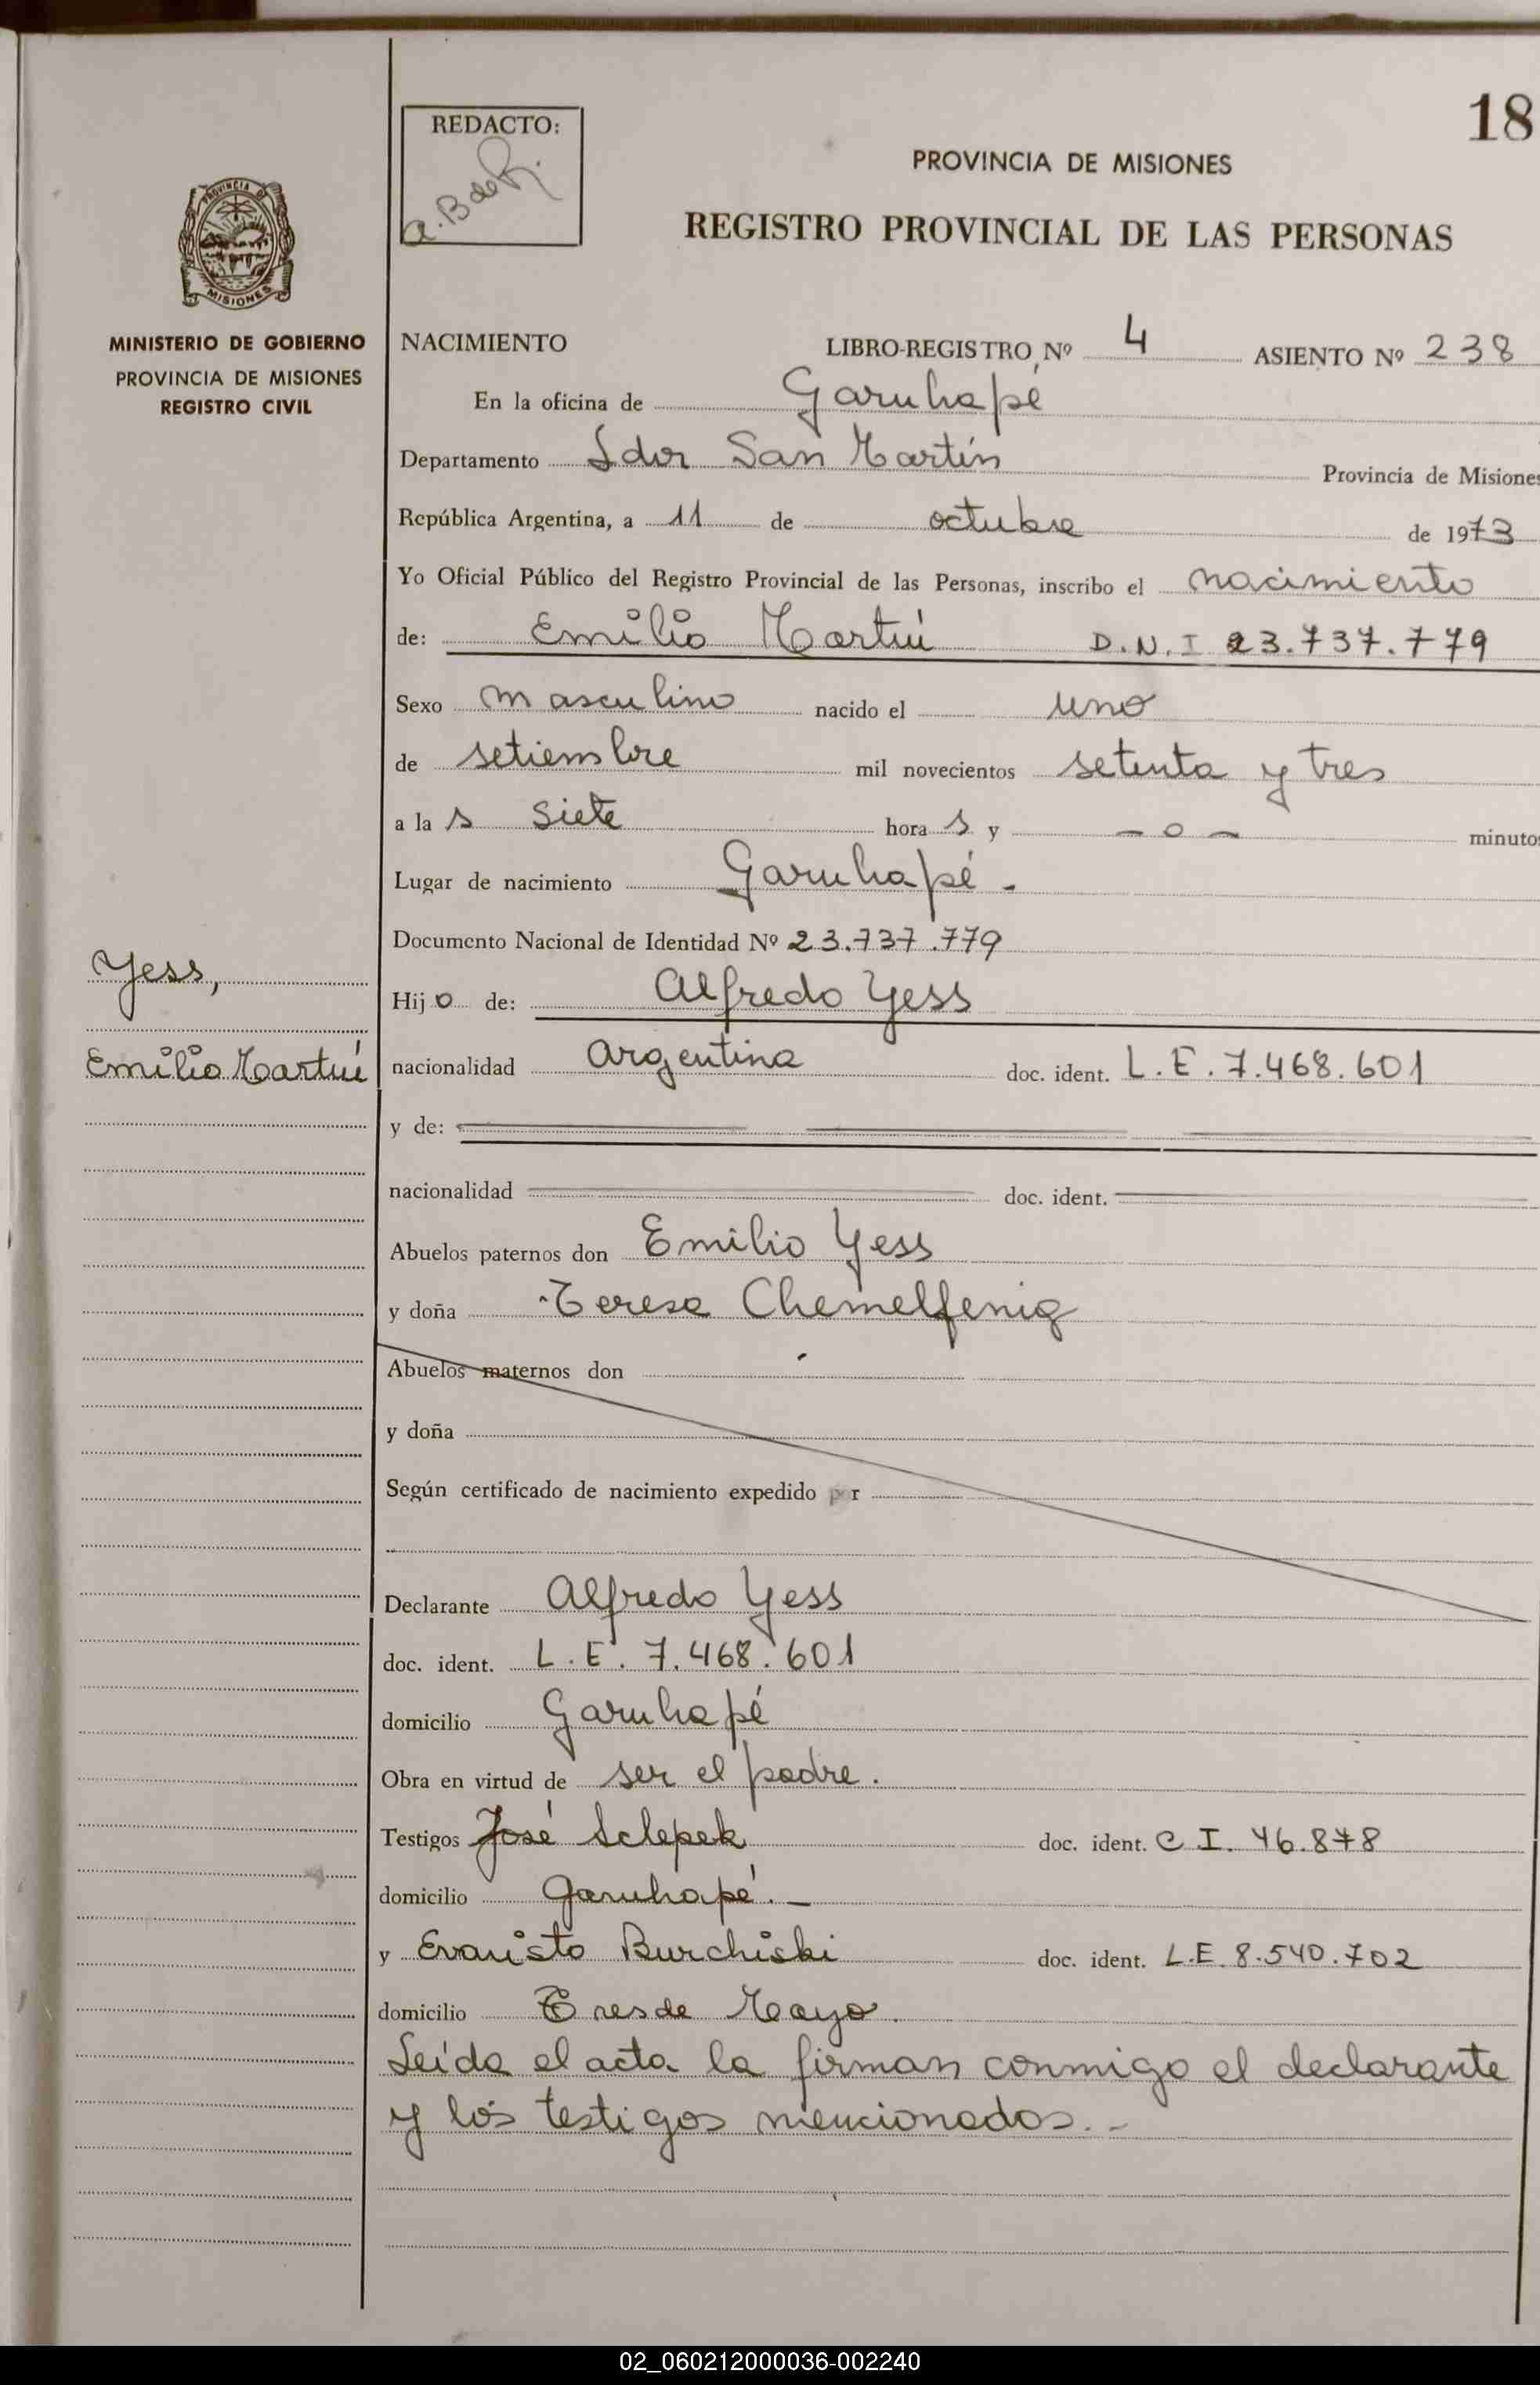 18
REDACTO:
a. B de R.
PROVINCIA DE MISIONES
REGISTRO PROVINCIAL DE LAS PERSONAS
PROVINCIA DE
MISIONES
MINISTERIO DE GOBIERNO
PROVINCIA DE MISIONES
REGISTRO CIVIL
NACIMIENTO LIBRO-REGISTRO Nº 4 ASIENTO Nº 238
En la oficina de Garuhapé
Departamento Ldor San Martín Provincia de Misiones
República Argentina, a 11 de octubre de 1973
Yo Oficial Público del Registro Provincial de las Personas, inscribo el nacimiento
de: Emilio Martín D.N.I 23.737.779
Sexo masculino nacido el uno
de setiembre mil novecientos setenta y tres
a la s siete hora s y - o - minutos
Lugar de nacimiento Garuhapé -
Documento Nacional de Identidad Nº 23.737.779
Yess,
Emilio Martín
Hij o de: Alfredo Yess
nacionalidad Argentina doc. ident. L.E. 7.468.601
y de:
nacionalidad doc. ident.
Abuelos paternos don Emilio Yess
y doña Teresa Chemelfenig
Abuelos maternos don
y doña
Según certificado de nacimiento expedido por
Declarante Alfredo Yess
doc. ident. L.E. 7.468.601
domicilio Garuhapé
Obra en virtud de ser el padre.
Testigos José Sclepek doc. ident. C I. 46.878
domicilio Garuhapé. -
y Evaristo Burchiski doc. ident. L.E. 8.540.702
domicilio Tres de Mayo.
Leída el acta la firman conmigo el declarante
y los testigos mencionados. -
02_060212000036-002240